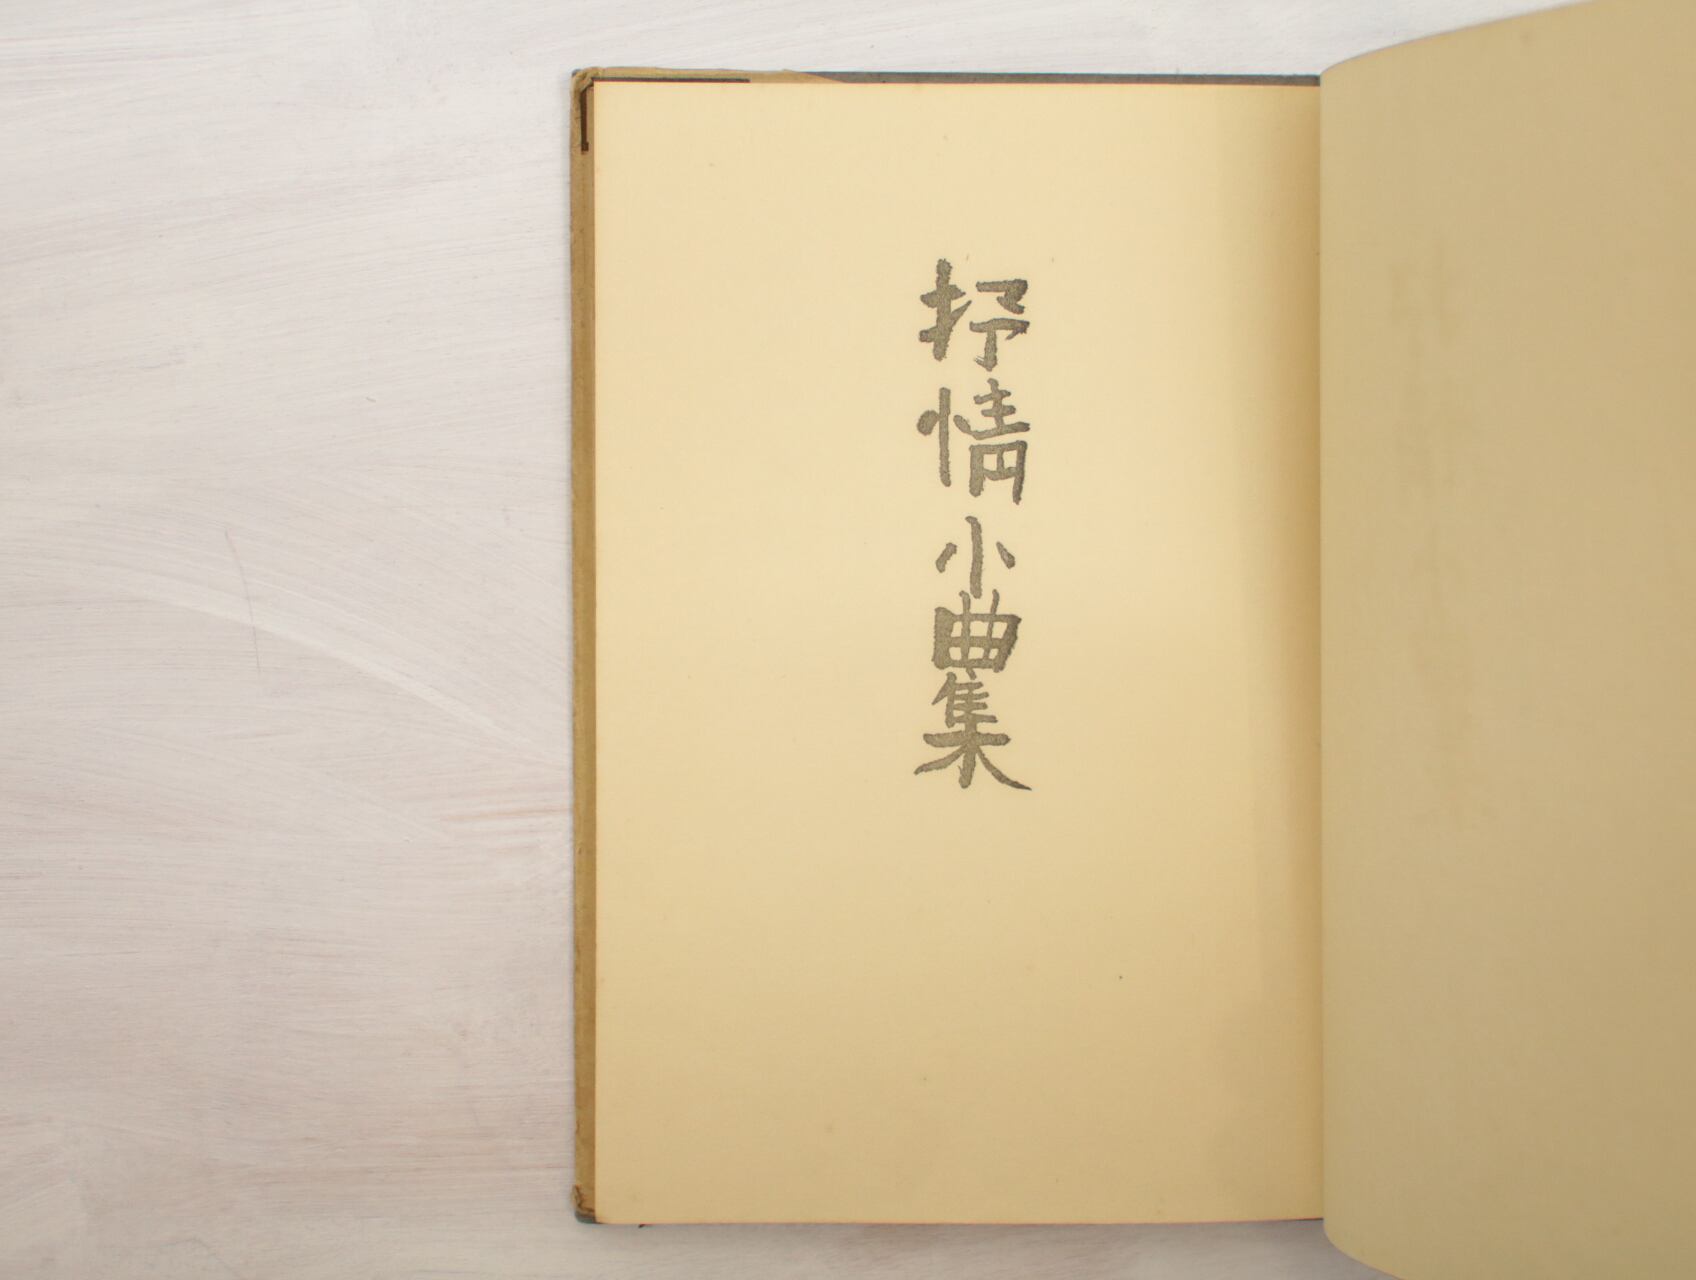 抒情小曲集